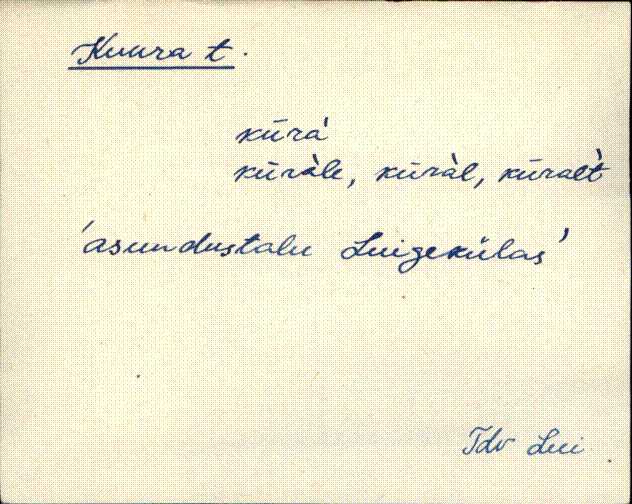 Kuura t.
kūrà
kūràle, kūràl, kūralt̀
'asundustalu Luigekülas'
Tdv Lui